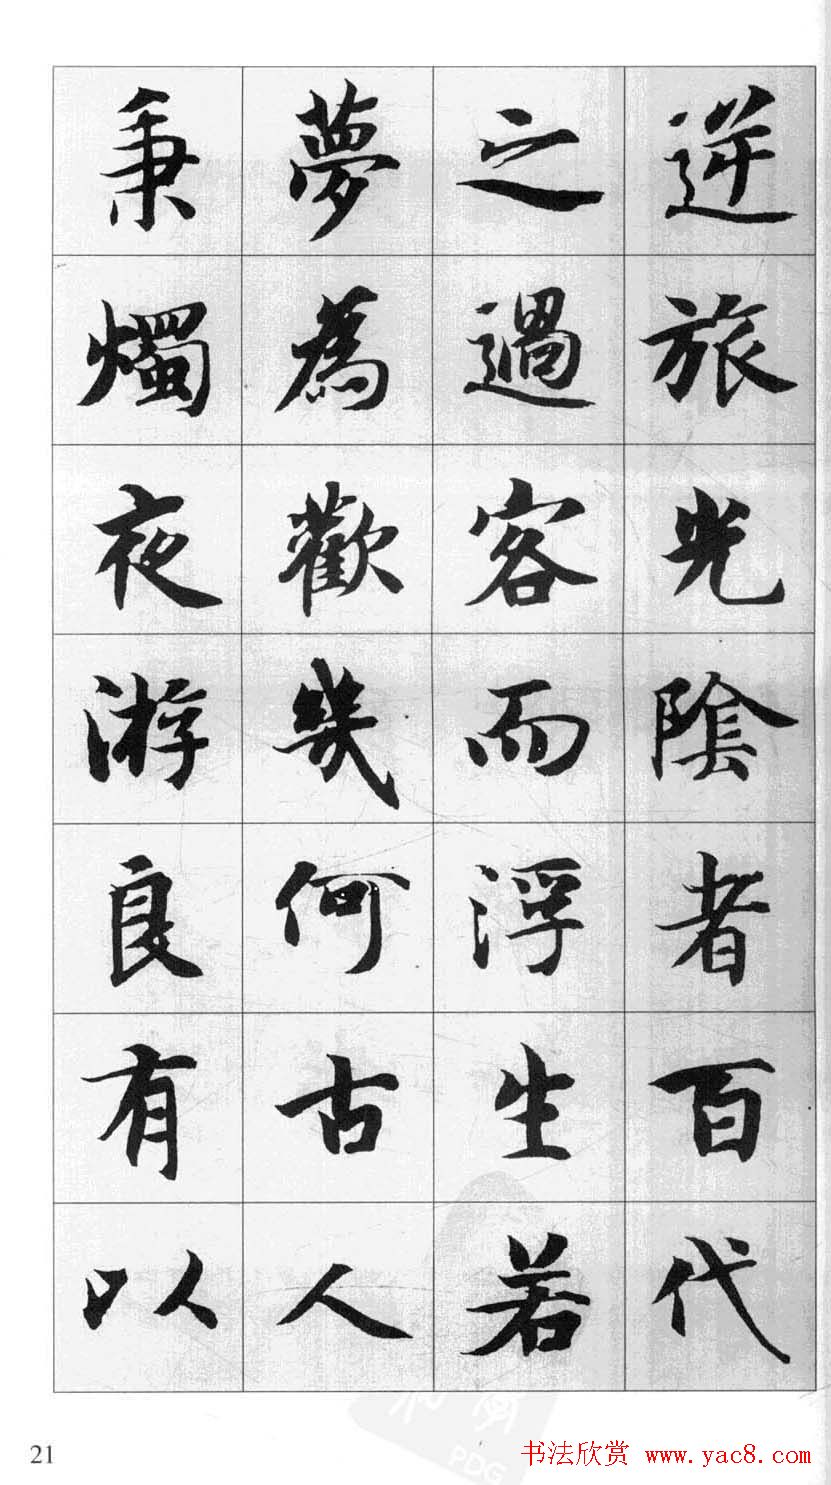 逆旅光陰者百代
之過客而浮生若
夢為歡幾何古人
秉燭夜游良有以
21
书法欣赏 www.yac8.com
PDG